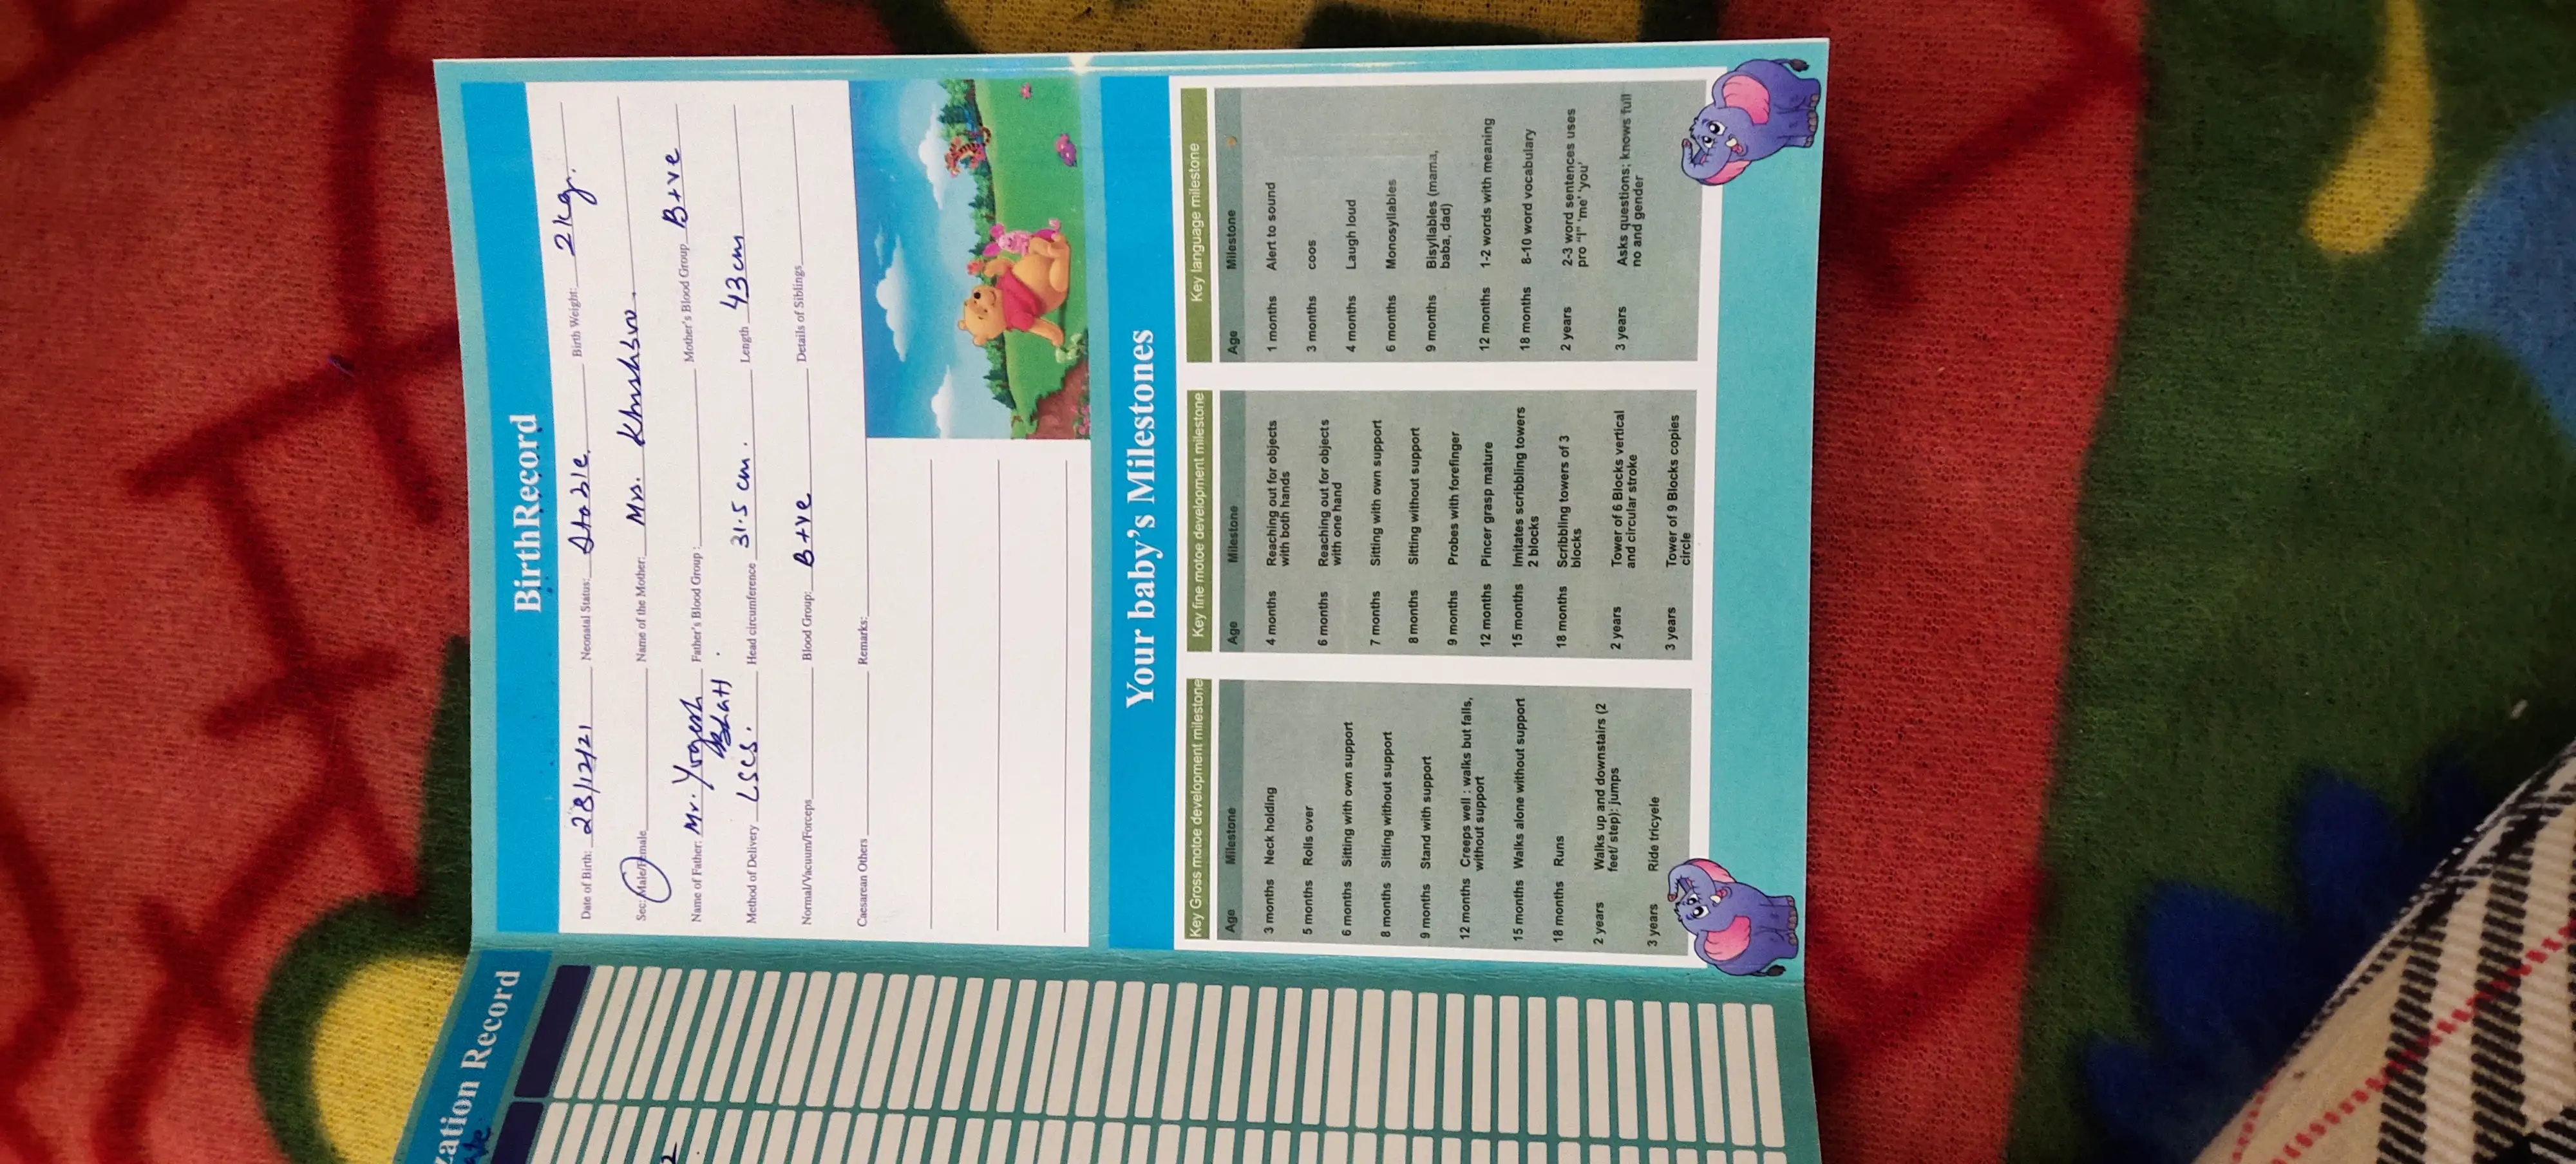 BirthRecord
Date of Birth: 28/12/21 Neonatal Status: Stable Birth Weight: 2 kg.
Sec: Male/Female Name of the Mother: Mrs. Khushbu.
Name of Father: Mr. Yogesh Bhatt Father's Blood Group: Mother's Blood Group B+ve
Method of Delivery LSCS. Head circumference 31.5 cm. Length 43 cm
Normal/Vacuum/Forceps Blood Group: B+ve Details of Siblings
Caesarean Others Remarks:
Your baby's Milestones
Key Gross motoe development milestone
Age Milestone
3 months Neck holding
5 months Rolls over
6 months Sitting with own support
8 months Sitting without support
9 months Stand with support
12 months Creeps well : walks but falls,
without support
15 months Walks alone without support
18 months Runs
2 years Walks up and downstairs (2
feet/ step): jumps
3 years Ride tricyele
Key fine motoe development milestone
Age Milestone
4 months Reaching out for objects
with both hands
6 months Reaching out for objects
with one hand
7 months Sitting with own support
8 months Sitting without support
9 months Probes with forefinger
12 months Pincer grasp mature
15 months Imitates scribbling towers
2 blocks
18 months Scribbling towers of 3
blocks
2 years Tower of 6 Blocks vertical
and circular stroke
3 years Tower of 9 Blocks copies
circle
Key language milestone
Age Milestone
1 months Alert to sound
3 months coos
4 months Laugh loud
6 months Monosyllables
9 months Bisyllables (mama,
baba, dad)
12 months 1-2 words with meaning
18 months 8-10 word vocabulary
2 years 2-3 word sentences uses
pro "I" 'me' 'you'
3 years Asks questions; knows full
no and gender
zation Record